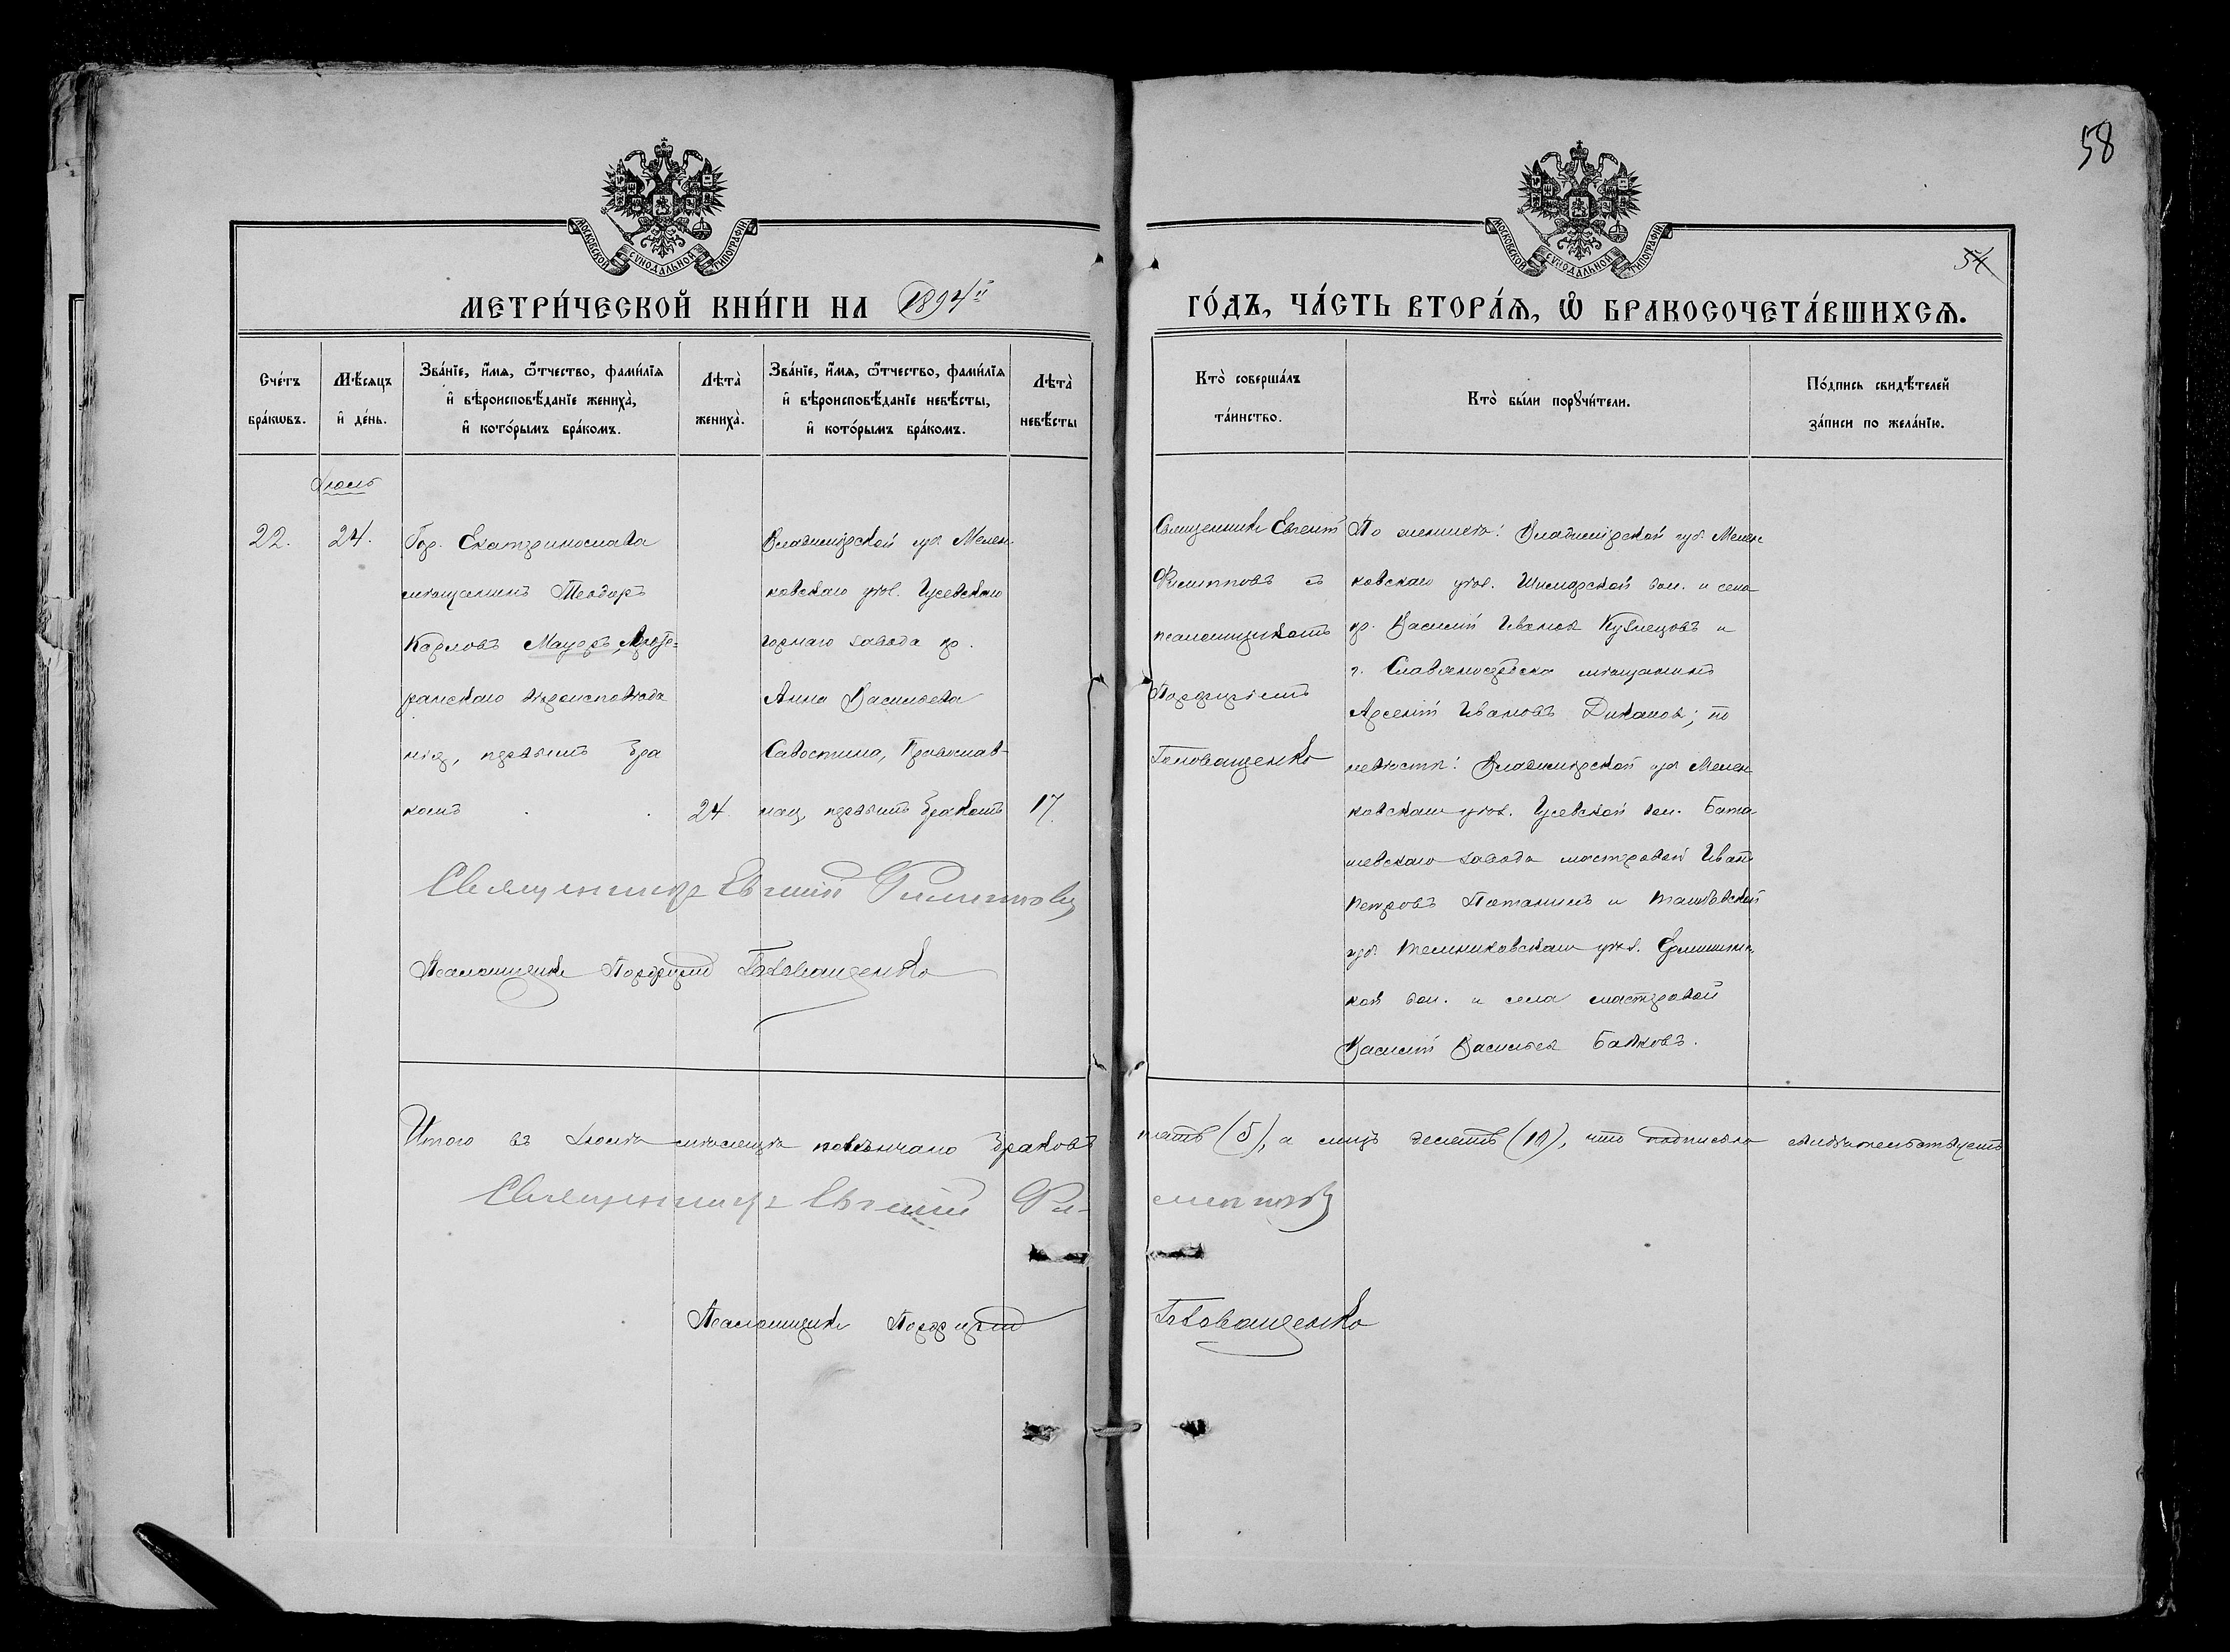 58
МОСКОВСКОЙ СУНОДАЛЬНОЙ ТИПОГРАФІИ
МОСКОВСКОЙ СУНОДАЛЬНОЙ ТИПОГРАФІИ
54
МЕТРИ́ЧЕСКОЙ КНИ́ГИ НА 1894й
ГО́ДЪ, ЧА́СТЬ ВТОРА́Ѧ, Ѡ҆ БРАКОСОЧЕТА́ВШИХСѦ.
Сче́тъ
бра́кѡвъ.
Мѣ́сяцъ
и҆ де́нь.
Зва́нїе, и҆́мѧ, ѻ҆́тчество, фами́лїѧ
и҆ вѣроисповѣ́данїе жениха̀,
и҆ кото́рымъ бра́комъ.
Лѣта̀
жениха̀.
Зва́нїе, и҆́мѧ, ѻ҆́тчество, фами́лїѧ
и҆ вѣроисповѣ́данїе невѣ́сты,
и҆ кото́рымъ бра́комъ.
Лѣта̀
невѣ́сты
Кто̀ соверша́лъ
та́инство.
Кто̀ бы́ли порꙋчи́тели.
По́дпись свидѣ́телей
за́писи по жела́нїю.
Іюль
22.
24.
Гор. Екатеринослава
мѣщанинъ Теодоръ
Карловъ Мауеръ, Люте-
ранскаго вѣроисповѣда
нія, первымъ бра
комъ
24.
Владимірской губ. Мелен
ковскаго уѣз. Гусевскаго
горнаго завода кр.
Анна Васильева
Савостина, Православ-
ная, первымъ бракомъ
17.
Священникъ Евгеній
Филипповъ съ
псаломщикомъ
Порфиріемъ
Головащенко
По женихѣ: Владимірской губ. Мелен
ковскаго уѣз. Шиморской вол. и села
кр. Василій Ивановъ Кузнецовъ и
г. Славяносербска мѣщанинъ
Арсеній Ивановъ Дикановъ; по
невѣстѣ: Владимірской губ. Мелен
ковскаго уѣз. Гусевской вол. Бата-
шевскаго завода мастеровой Иванъ
Петровъ Потанинъ и Тамбовской
губ. Темниковскаго уѣз.
кой вол. и села мастеровой
Василій Васильев
Священникъ Евгеній Филипповъ
Псаломщикъ Порфирій Головащенко
Итого въ Іюлѣ мѣсяцѣ повѣнчано браковъ пять (5), а лицъ десять (10), что подписью свидѣтельствуемъ
Священникъ Евгеній Филипповъ
Псаломщикъ Порфирій Головащенко